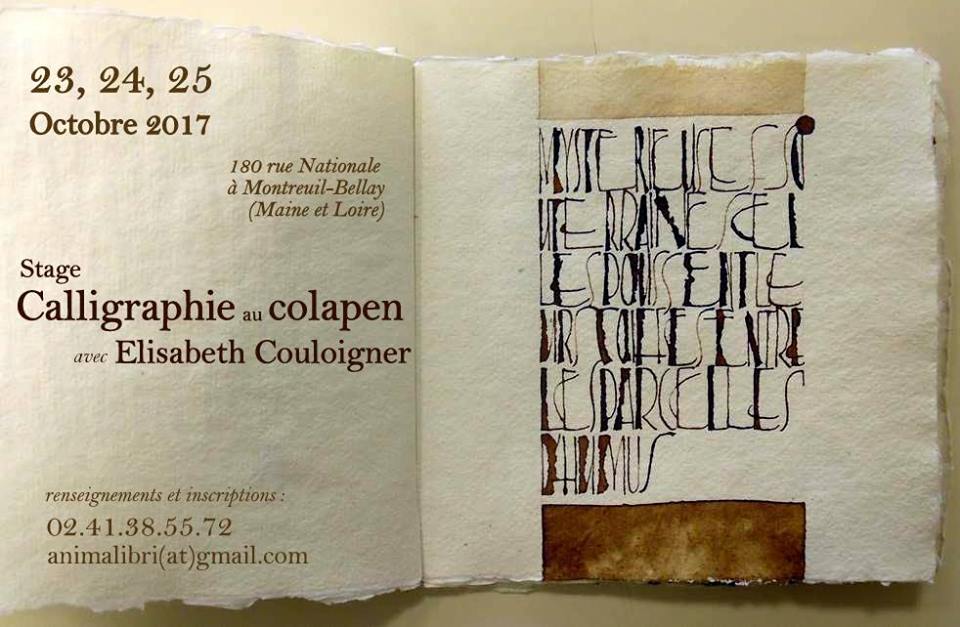 23, 24, 25
Octobre 2017
180 rue Nationale
à Montreuil-Bellay
(Maine et Loire)
Stage
Calligraphie au colapen
avec Elisabeth Couloigner
renseignements et inscriptions :
02.41.38.55.72
animalibri(at)gmail.com
MYSTERIEUSES SO
UTERRAINES EL
LES POUSSENT LE
URS COIFFES ENTRE
LES PARCELLES
D'HUMUS